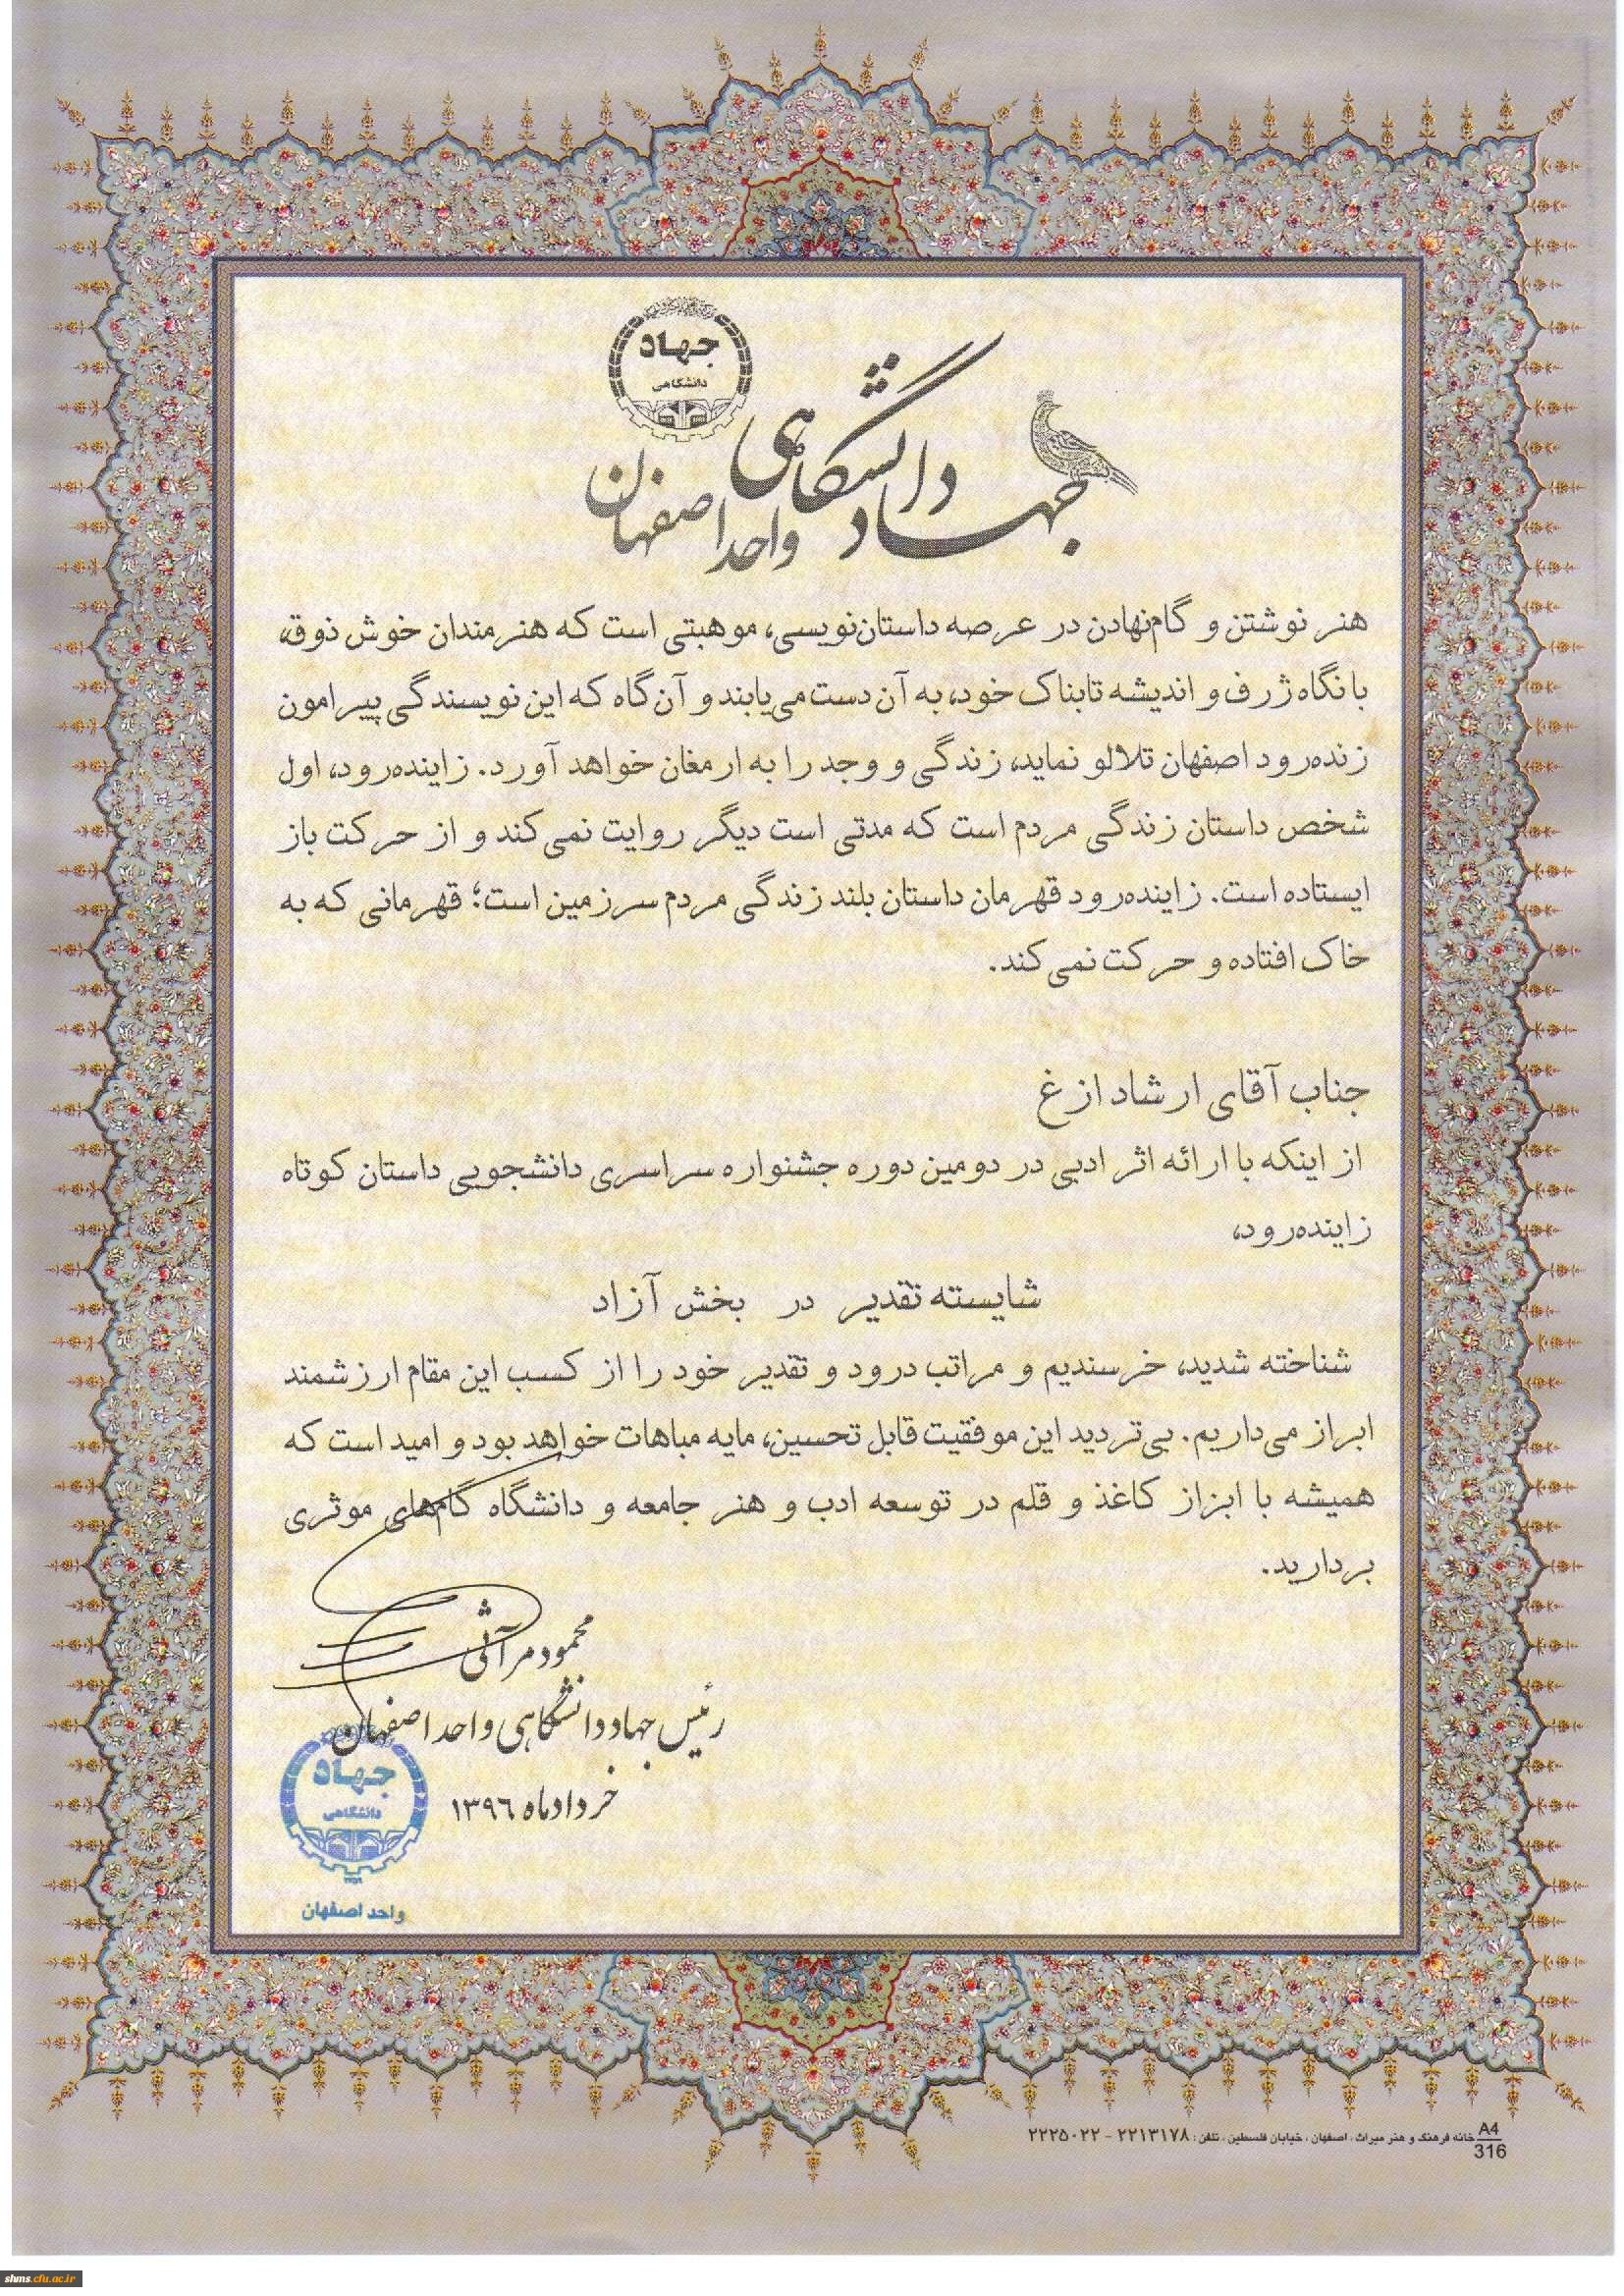 جهاد
دانشگاهی
جهاد دانشگاهی
واحد اصفهان
هنر نوشتن و گام‌نهادن در عرصه داستان‌نویسی، موهبتی است که هنرمندان خوش ذوق،
با نگاه ژرف و اندیشه تابناک خود، به آن دست می‌یابند و آن گاه که این نویسندگی پیرامون
زنده‌رود اصفهان تلالو نماید، زندگی و وجد را به ارمغان خواهد آورد. زاینده‌رود، اول
شخص داستان زندگی مردم است که مدتی است دیگر روایت نمی‌کند و از حرکت باز
ایستاده است. زاینده‌رود قهرمان داستان بلند زندگی مردم سرزمین است؛ قهرمانی که به
خاک افتاده و حرکت نمی‌کند.
جناب آقای ارشاد ازغ
از اینکه با ارائه اثر ادبی در دومین دوره جشنواره سراسری دانشجویی داستان کوتاه
زاینده‌رود،
شایسته تقدیر در بخش آزاد
شناخته شدید، خرسندیم و مراتب درود و تقدیر خود را از کسب این مقام ارزشمند
ابراز می‌داریم. بی‌تردید این موفقیت قابل تحسین، مایه مباهات خواهد بود و امید است که
همیشه با ابزار کاغذ و قلم در توسعه ادب و هنر جامعه و دانشگاه گام‌های موثری
بردارید.
محمود مرآثی
رئیس جهاد دانشگاهی واحد اصفهان
خرداد ماه ۱۳۹۶
جهاد
دانشگاهی
واحد اصفهان
A4
316
خانه فرهنگ و هنر میراث، اصفهان، خیابان فلسطین، تلفن: ۲۲۱۳۱۷۸ - ۲۲۲۵۰۲۲
shms.cfu.ac.ir